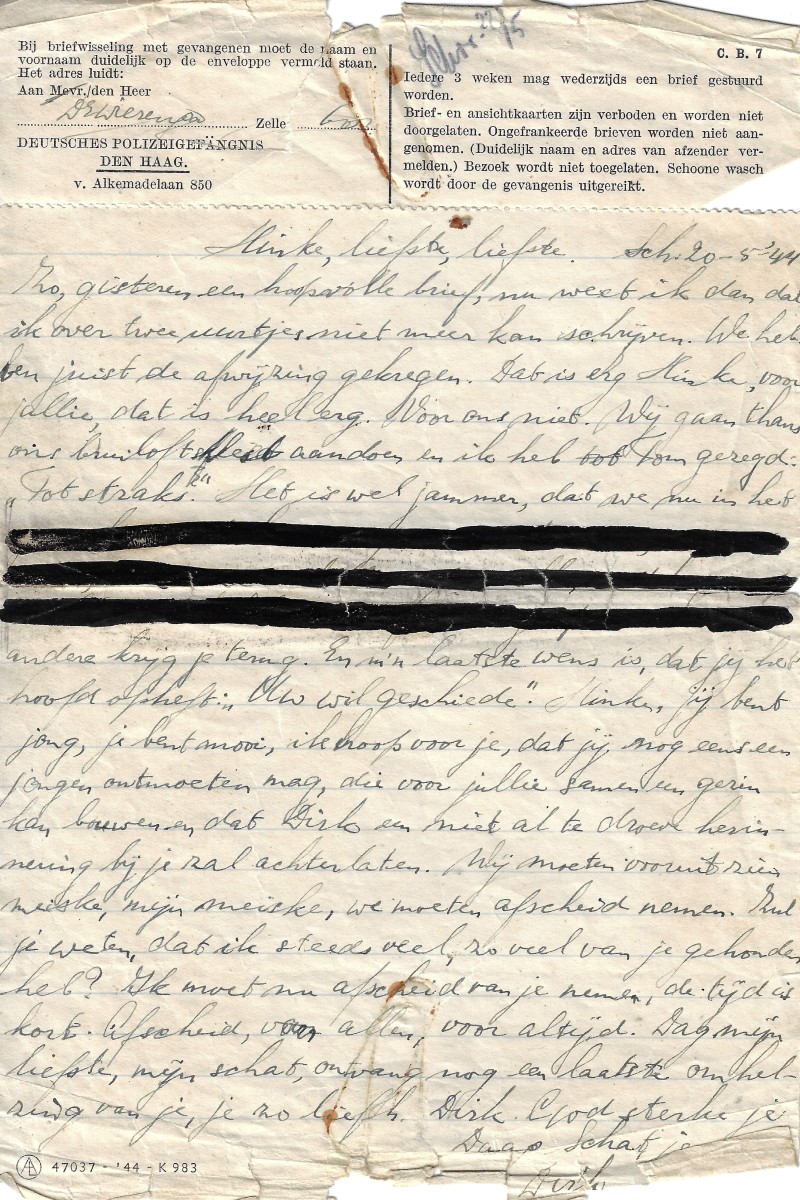 Bij briefwisseling met gevangenen moet de naam en
voornaam duidelijk op de enveloppe vermeld staan.
Het adres luidt:
Aan Mevr./den Heer
D. Wierenga Zelle
DEUTSCHES POLIZEIGEFÄNGNIS
DEN HAAG.
v. Alkemadelaan 850
C. B. 7
Iedere 3 weken mag wederzijds een brief gestuurd
worden.
Brief- en ansichtkaarten zijn verboden en worden niet
doorgelaten. Ongefrankeerde brieven worden niet aan-
genomen. (Duidelijk naam en adres van afzender ver-
melden.) Bezoek wordt niet toegelaten. Schoone wasch
wordt door de gevangenis uitgereikt.
Hinke, liefste, liefste. Sch. 20-5-'44
Zo, gisteren een hoopvolle brief, nu weet ik dan dat
ik over twee uurtjes niet meer kan schrijven. We heb-
ben juist de afwijzing gekregen. Dat is erg Hinke, voor
jullie, dat is heel erg. Voor ons niet. Wij gaan thans
ons bruilofts aandoen en ik heb tot Tom gezegd:
„Tot straks." Het is wel jammer, dat we nu in het
andere krijg je terug. En m'n laatste wens is, dat jij het
hoofd opheft: „Uw wil geschiede". Hinke, jij bent
jong, je bent mooi, ik hoop voor je, dat jij nog eens een
jongen ontmoeten mag, die voor jullie samen een gezin
kan bouwen en dat Dirk een niet al te droeve herin-
nering bij je zal achterlaten. Wij moeten vooruit zien
meiske, mijn meiske, we moeten afscheid nemen. Zul
je weten, dat ik steeds veel, zo veel van je gehouden
heb? Ik moet nu afscheid van je nemen, de tijd is
kort. Afscheid, van allen, voor altijd. Dag mijn
liefste, mijn schat, ontvang nog een laatste omhel-
zing van je, je zo liefh. Dirk. God sterke je
Daag Schat je
Dirk
47037 - '44 - K 983